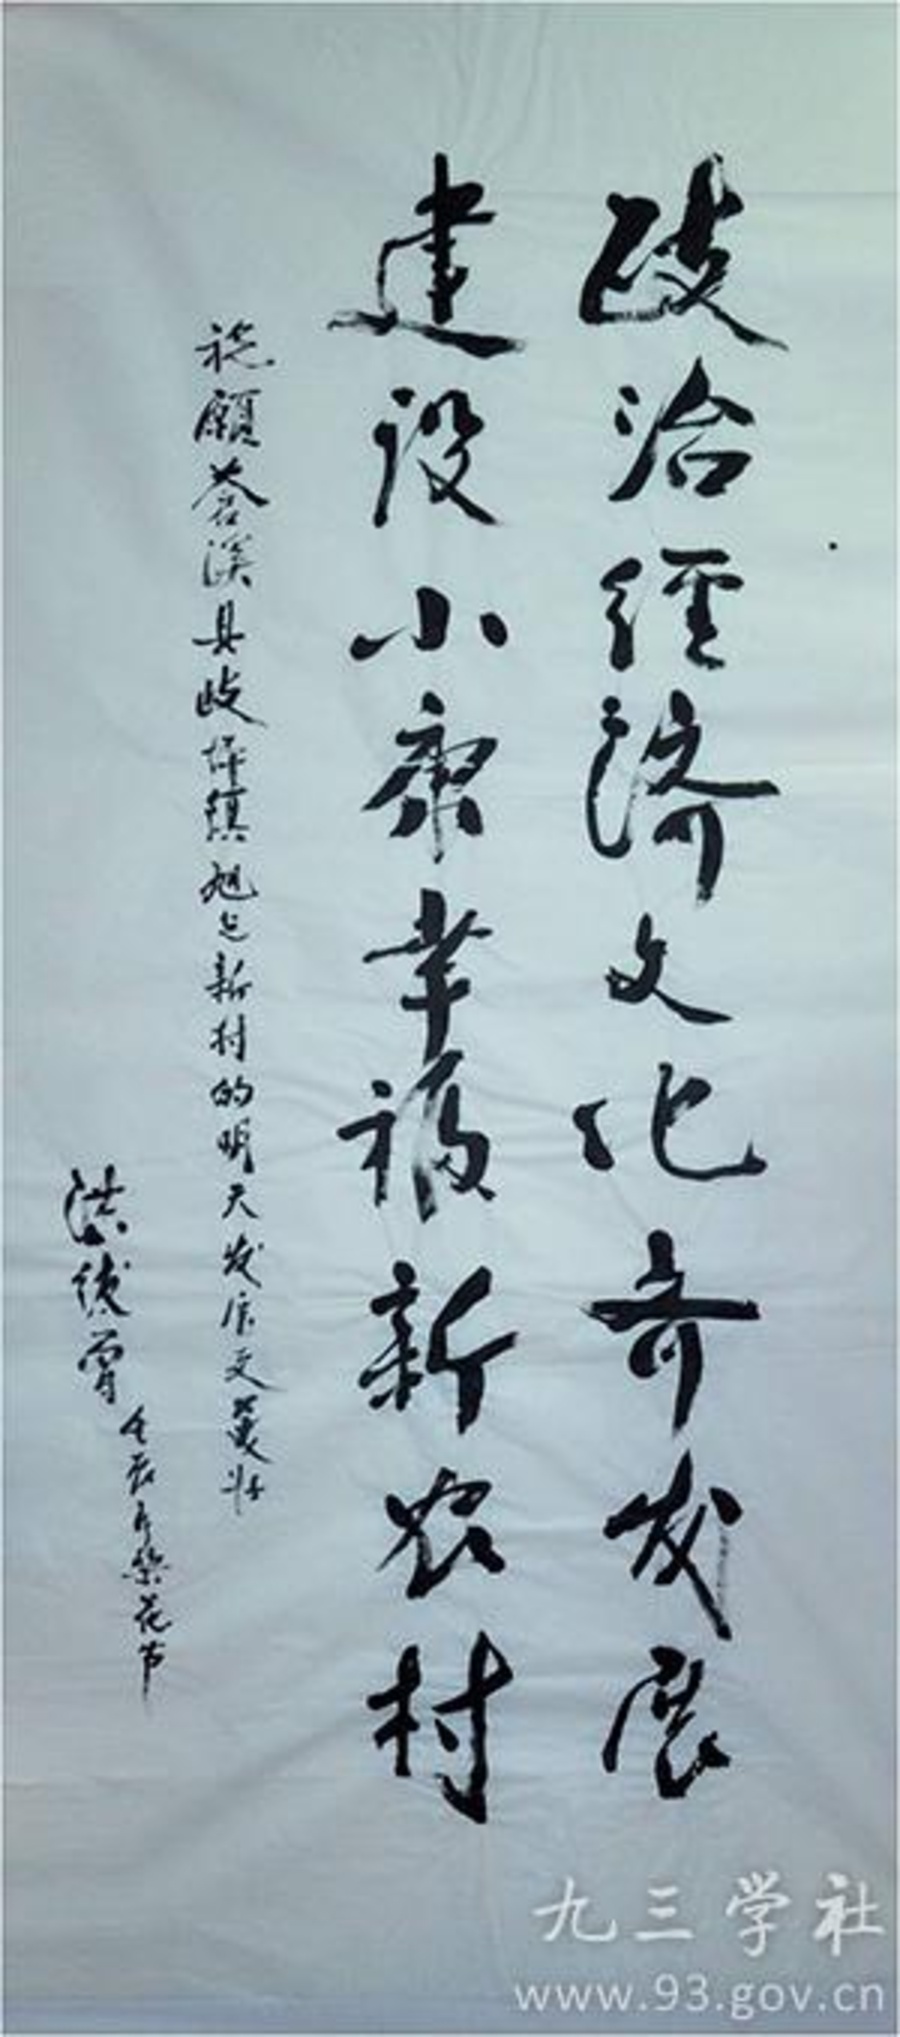 政治经济文化齐发展
建设小康幸福新农村
祝愿苍溪县歧坪镇旭光新村的明天发展更美壮
洪绂曾
壬辰年梨花节
九三学社
www.93.gov.cn